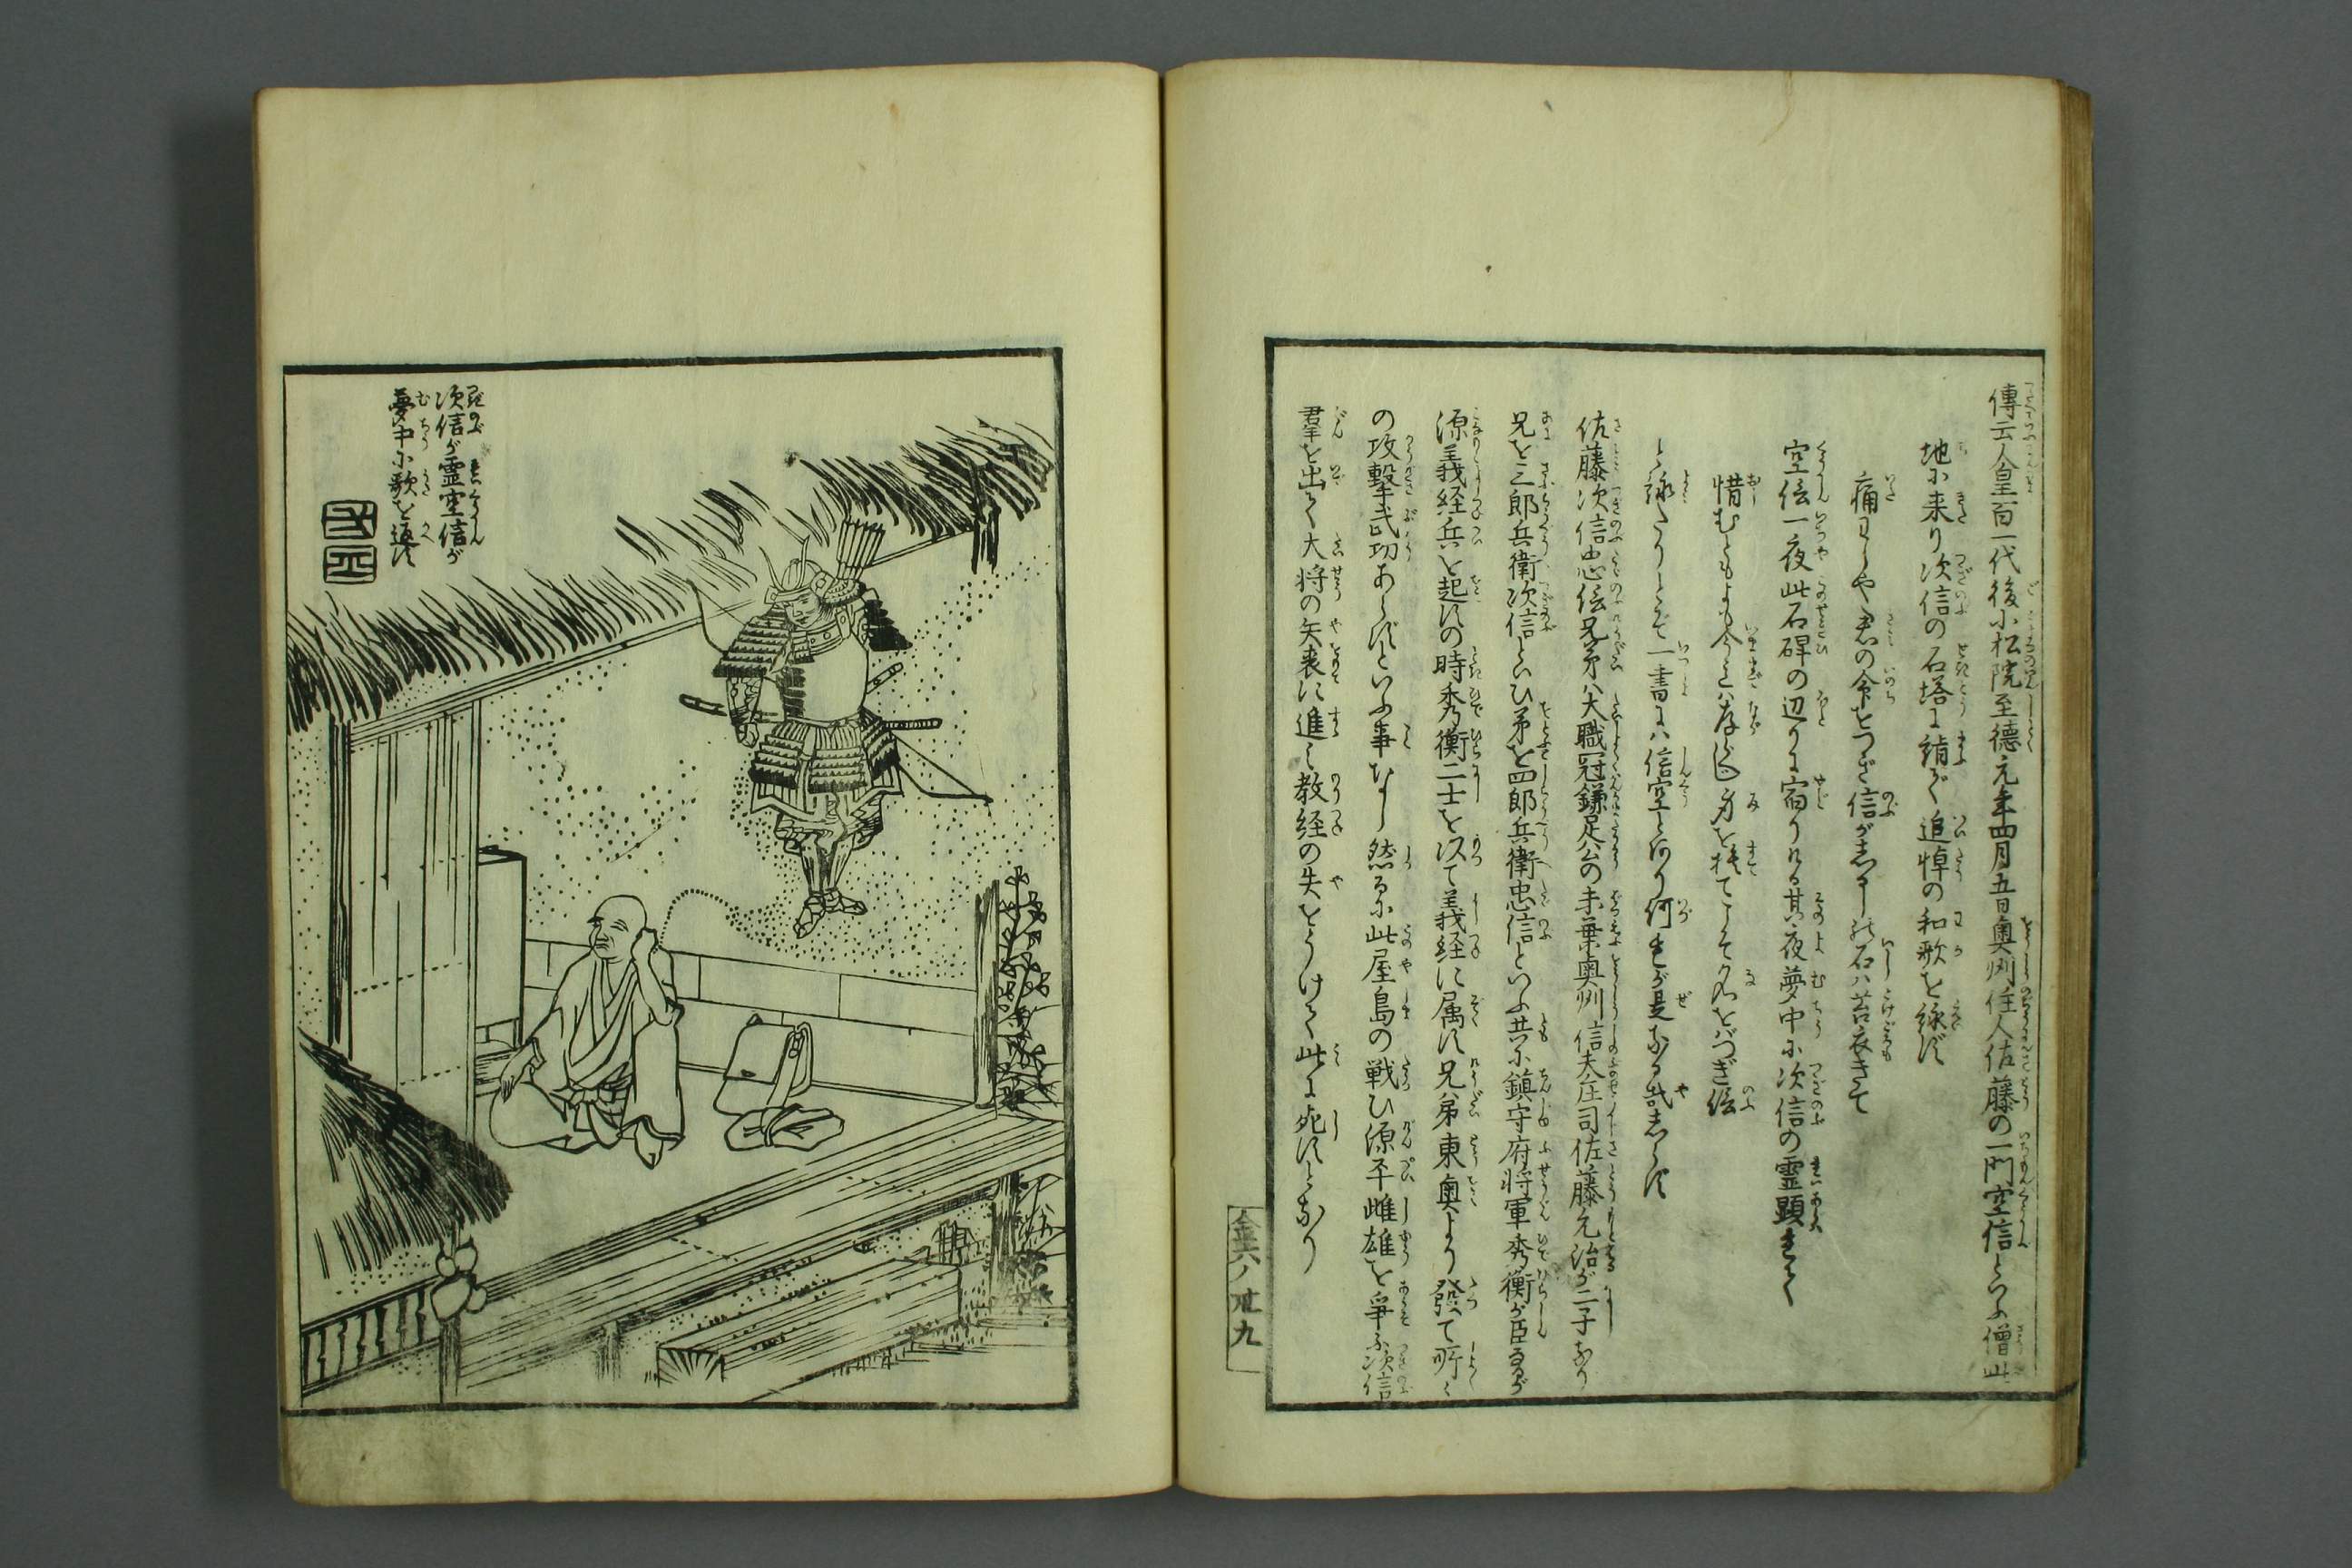 傳云人皇百一代後小松院至徳元年四月五日奥州住人佐藤の一門空信といふ僧此
地に来り次信の石塔に綃て追悼の和歌を詠ず
痛ましや君の命をつぎ信がしるしの石は苔衣きて
空信一夜此石碑の辺りに宿りける其夜夢中に次信の霊顕れて
惜むともよも今までは存じ身を捨てこそ名をばつぎ信
と詠たりとぞ一書には信空とあり何れが是なる哉しらず
佐藤次信忠信兄弟は大職冠鎌足公の末葉奥州信夫庄司佐藤元治が二子なり
兄を三郎兵衛次信といひ弟を四郎兵衛忠信といふ共に鎮守府将軍秀衡が臣なるが
源義経兵を起すの時秀衡二士を以て義経に属す兄弟東奥より發て所々
の攻撃武功あらずといふ事なし然るに此屋島の戦ひ源平雌雄を爭ふ次信
羣を出て大将の矢表に進み教経の矢をうけて此に死すとなり
金六ノ廿九
次信が霊空信が
夢中に歌を返す